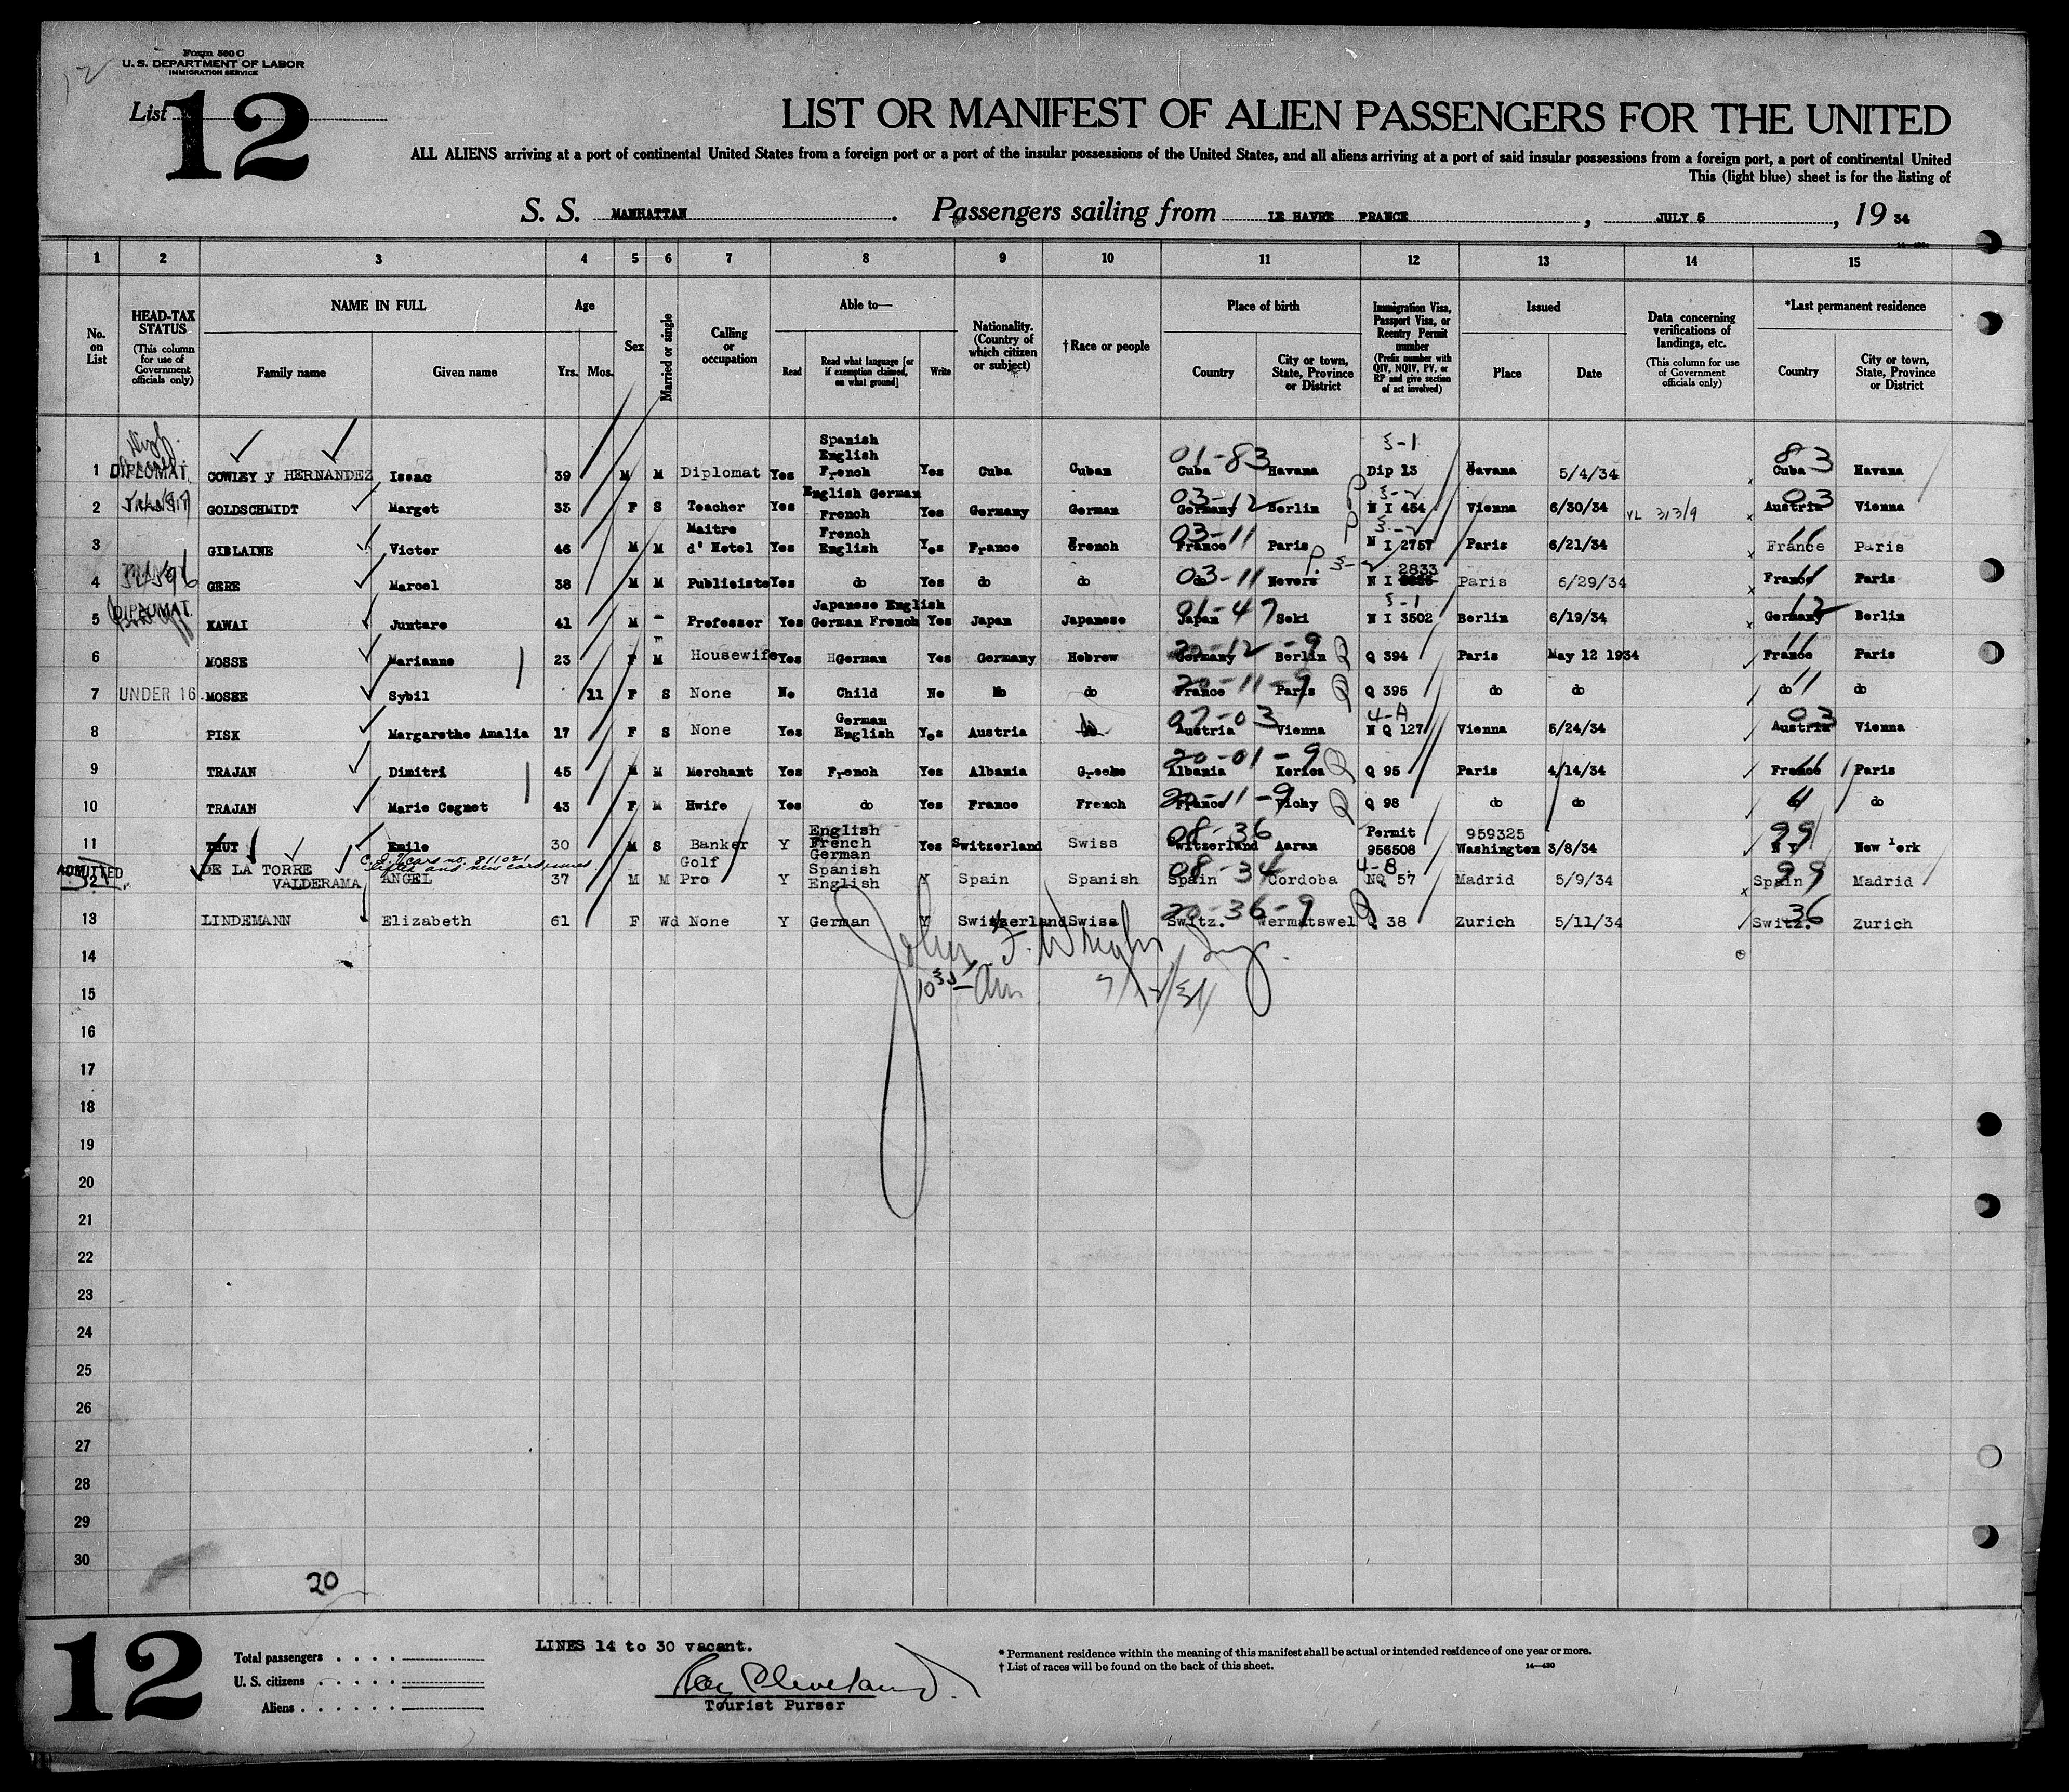 12
Form 500 C
U. S. DEPARTMENT OF LABOR
IMMIGRATION SERVICE
List 12
LIST OR MANIFEST OF ALIEN PASSENGERS FOR THE UNITED
ALL ALIENS arriving at a port of continental United States from a foreign port or a port of the insular possessions of the United States, and all aliens arriving at a port of said insular possessions from a foreign port, a port of continental United
This (light blue) sheet is for the listing of
S. S. MANHATTAN. Passengers sailing from LE HAVRE FRANCE, JULY 5, 19 34
1 2 3 4 5 6 7 8 9 10 11 12 13 14 15
No. on List
HEAD-TAX STATUS (This column for use of Government officials only)
NAME IN FULL Family name Given name
Age Yrs. Mos.
Sex
Married or single
Calling or occupation
Able to— Read Read what language [or if exemption claimed, on what ground] Write
Nationality. (Country of which citizen or subject)
†Race or people
Place of birth Country City or town, State, Province or District
Immigration Visa, Passport Visa, or Reentry Permit number (Prefix number with QIV, NQIV, PV, or RP and give section of act involved)
Issued Place Date
Data concerning verifications of landings, etc. (This column for use of Government officials only)
*Last permanent residence Country City or town, State, Province or District
1 DIPLOMAT. COWLEY y HERNANDEZ Isaac 39 M M Diplomat Yes Spanish English French Yes Cuba Cuban 01-83 Cuba Havana 3-1 Dip 13 Havana 5/4/34 83 Cuba Havana
2 GOLDSCHMIDT Marget 35 F S Teacher Yes English German French Yes Germany German 03-12 Germany Berlin P 3-2 N I 454 Vienna 6/30/34 VL 313/9 03 Austria Vienna
3 GIBLAINE Victor 46 M M Maitre d' Hotel Yes French English Yes France French 03-11 France Paris P 3-2 N I 2757 Paris 6/21/34 11 France Paris
4 GERE Marcel 38 M M Publiciste Yes do Yes do do 03-11 do Nevers P. 3-2 2833 N I Paris 6/29/34 11 France Paris
5 DIPLOMAT. KAWAI Juntaro 41 M Professor Yes Japanese English German French Yes Japan Japanese 01-47 Japan Seki 3-1 N I 3502 Berlin 6/19/34 12 Germany Berlin
6 MOSSE Marianne 23 F M Housewife Yes German Yes Germany Hebrew 20-12-9 Germany Berlin Q Q 394 Paris May 12 1934 11 France Paris
7 UNDER 16 MOSSE Sybil 11 F S None No Child No do do 20-11-9 France Paris Q Q 395 do do 11 do do
8 PISK Margarethe Amalia 17 F S None Yes German English Yes Austria 07-03 Austria Vienna 4-A N Q 127 Vienna 5/24/34 03 Austria Vienna
9 TRAJAN Dimitri 45 M M Merchant Yes French Yes Albania Greche 20-01-9 Albania Koriea Q Q 95 Paris 4/14/34 11 France Paris
10 TRAJAN Marie Cognet 43 F M Hwife Yes do Yes France French 20-11-9 France Vichy Q Q 98 do do 11 do
11 THUT Emile 30 M S Banker Y English French German Yes Switzerland Swiss 08-36 Switzerland Aarau Permit 956508 959325 Washington 3/8/34 99 N Y New York
ADMITTED 12 DE LA TORRE VALDERAMA ANGEL 37 M M Golf Pro Y Spanish English Y Spain Spanish 08-34 Spain Cordoba 4-B. NQ 57 Madrid 5/9/34 99 Spain Madrid
13 LINDEMANN Elizabeth 61 F Wd None Y German Y Switzerland Swiss 20-36-9 Switz. Wermatswel Q Q 38 Zurich 5/11/34 36 Switz. Zurich
14
John F. Wright, Insp.
15
16
17
18
19
20
21
22
23
24
25
26
27
28
29
30
20
12
Total passengers
U. S. citizens
Aliens
LINES 14 to 30 vacant.
Ray Cleveland.
Tourist Purser
* Permanent residence within the meaning of this manifest shall be actual or intended residence of one year or more.
† List of races will be found on the back of this sheet.
14—430